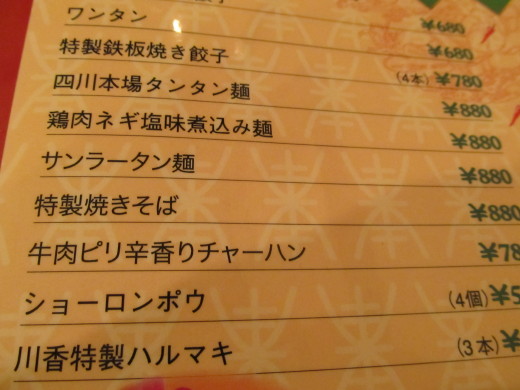 ¥680
ワンタン ¥680
特製鉄板焼き餃子 (4本) ¥780
四川本場タンタン麺 ¥880
鶏肉ネギ塩味煮込み麺 ¥880
サンラータン麺 ¥880
特製焼きそば ¥880
牛肉ピリ辛香りチャーハン ¥78
ショーロンポウ (4個) ¥5
川香特製ハルマキ (3本) ¥